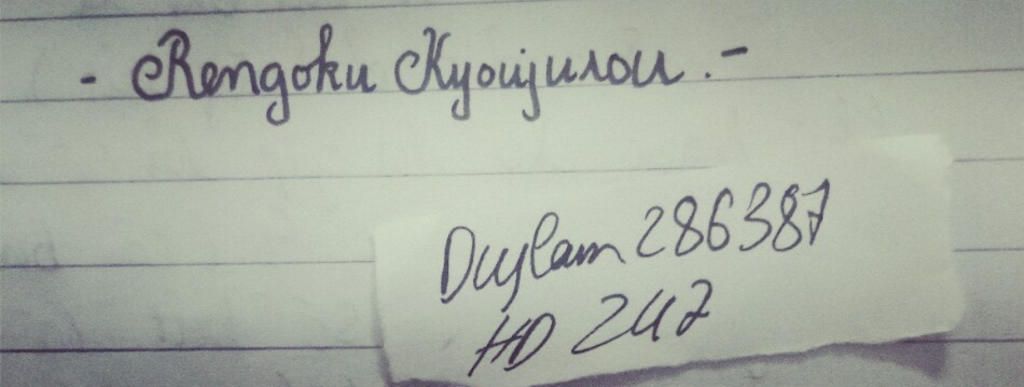 - Rengoku Kyoujurou.-
Duylam286387
HD 247